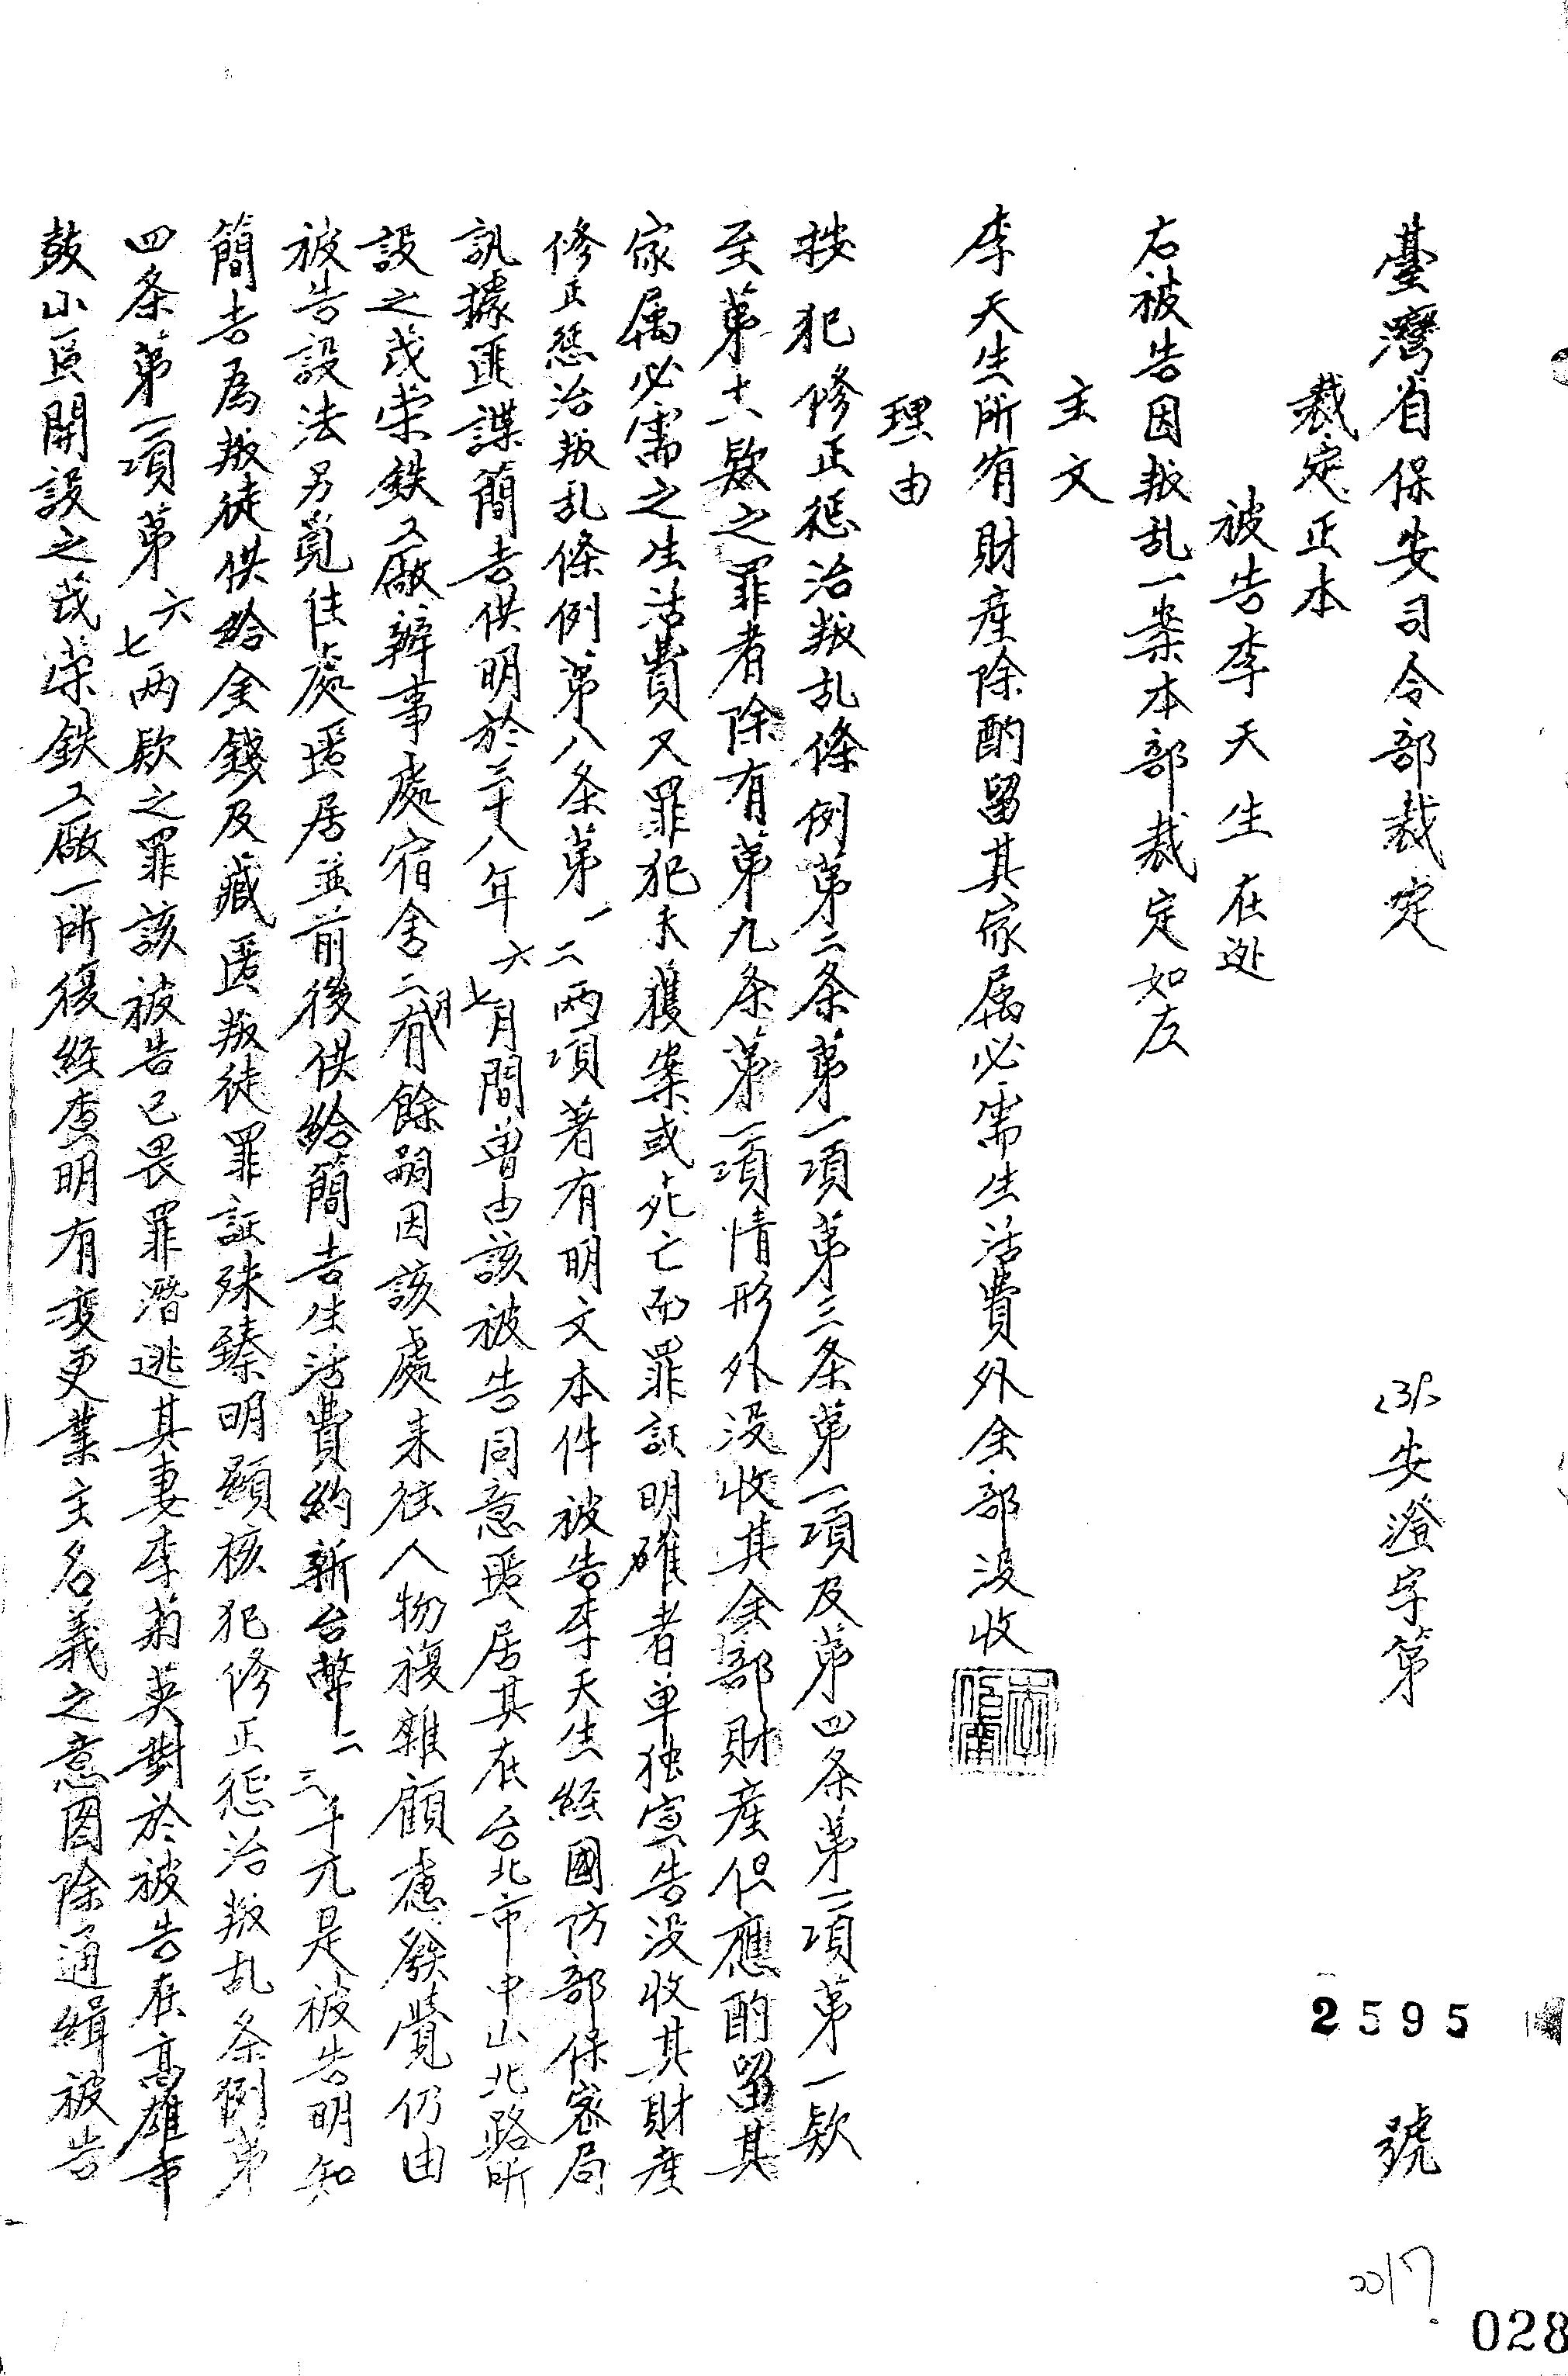 臺灣省保安司令部裁定 安澄字第2595號
裁定正本
被告李天生 在逃
右被告因叛乱一案本部裁定如左
主文
李天生所有財産除酌留其家属必需生活費外全部没收
理由
按犯修正惩治叛乱條例第二条第一項第三条第一項及第四条第一項第一款
至第十一款之罪者除有第九条第一項情形外没收其全部財産但應酌留其
家属必需之生活費又罪犯未獲案或死亡而罪証明確者单独宣告没收其財産
修正惩治叛乱條例第八条第一二兩項著有明文本件被告李天生経國防部保密局
訊據匪諜簡吉供明於三十八年六七月間曽由該被告同意匿居其在台北市中山北路所
設之茂荣鉄工廠辦事處宿舍二月有餘嗣因該處来往人物複雜顧慮發覺仍由
被告設法另覓住處匿居並前後供給簡吉生活費約新台幣二三千元是被告明知
簡吉為叛徒供給金錢及藏匿叛徒罪証殊臻明顯核犯修正惩治叛乱条例第
四条第一項第六七兩款之罪該被告已畏罪潛逃其妻李菊英對於被告在高雄市
鼓山區開設之茂荣鉄工廠一所復経查明有变更業主名義之意圖除通緝被告
2017.
028